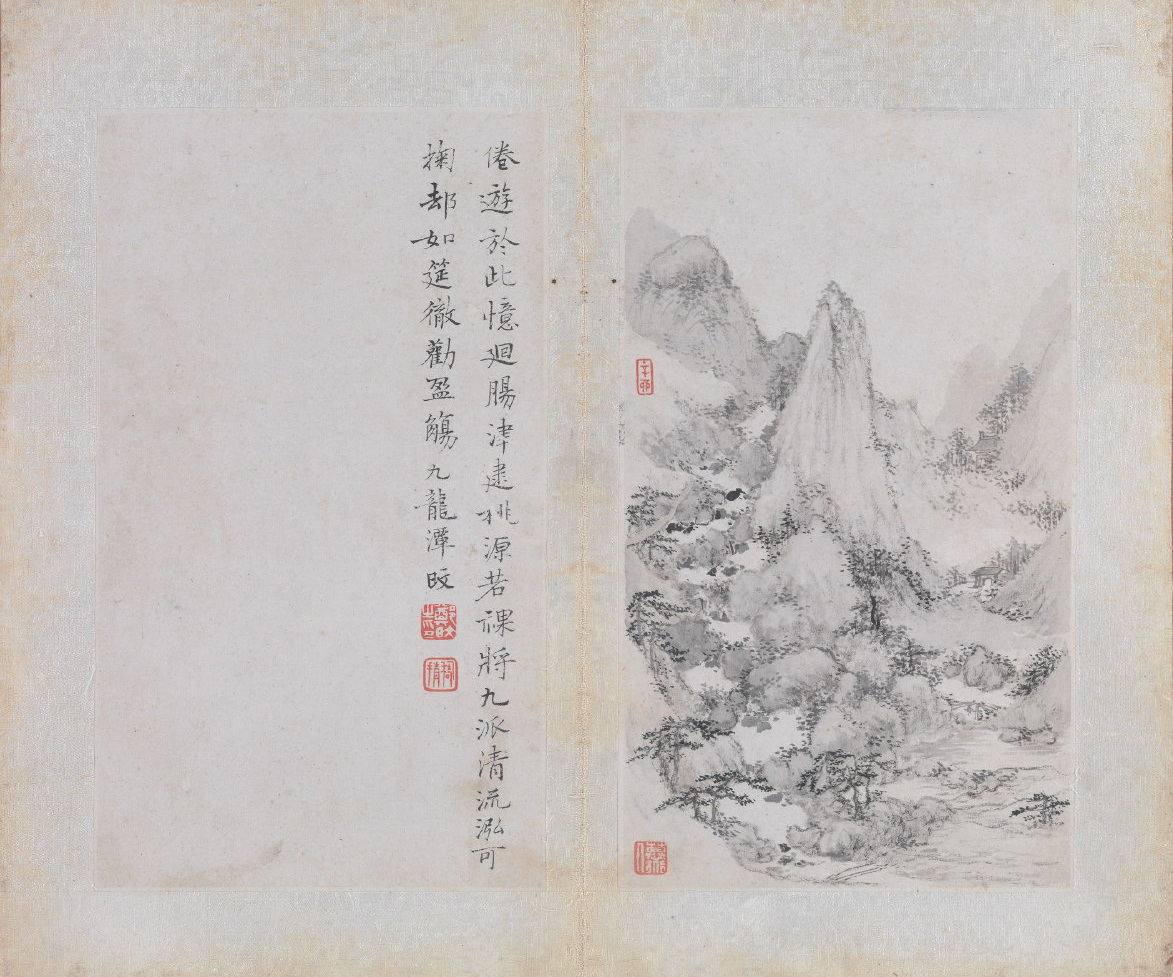 倦遊於此憶廻腸津逮桃源若祼將九派清流泓可
掬却如筵徹勸盈觴九龍潭旼
辛卯